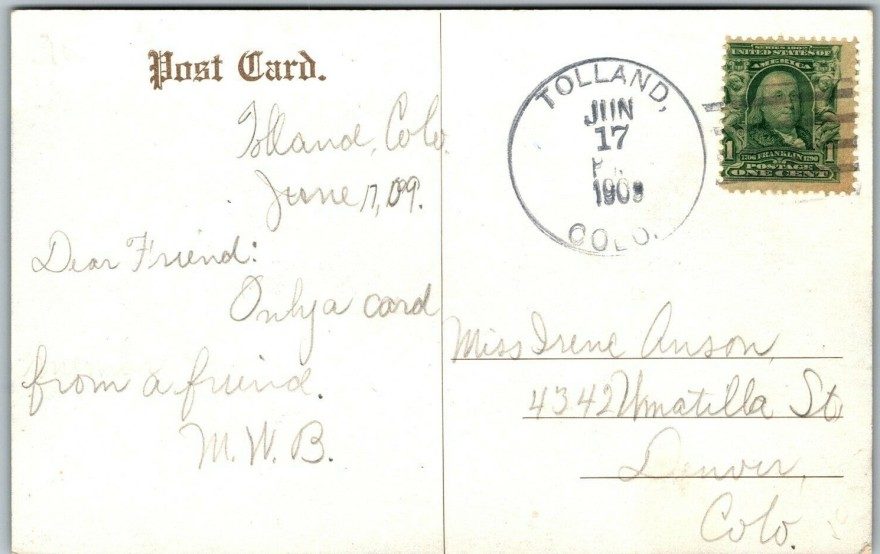 Post Card.
Tolland, Colo.
June 17, 09.
Dear Friend:
Only a card
from a friend.
M. W. B.
TOLLAND,
JUN
17
1909
COLO.
SERIES 1902
UNITED STATES OF
AMERICA
1706 FRANKLIN 1790
1 1
POSTAGE
ONE CENT
Miss Irene Anson,
4342 Umatilla St
Denver,
Colo.